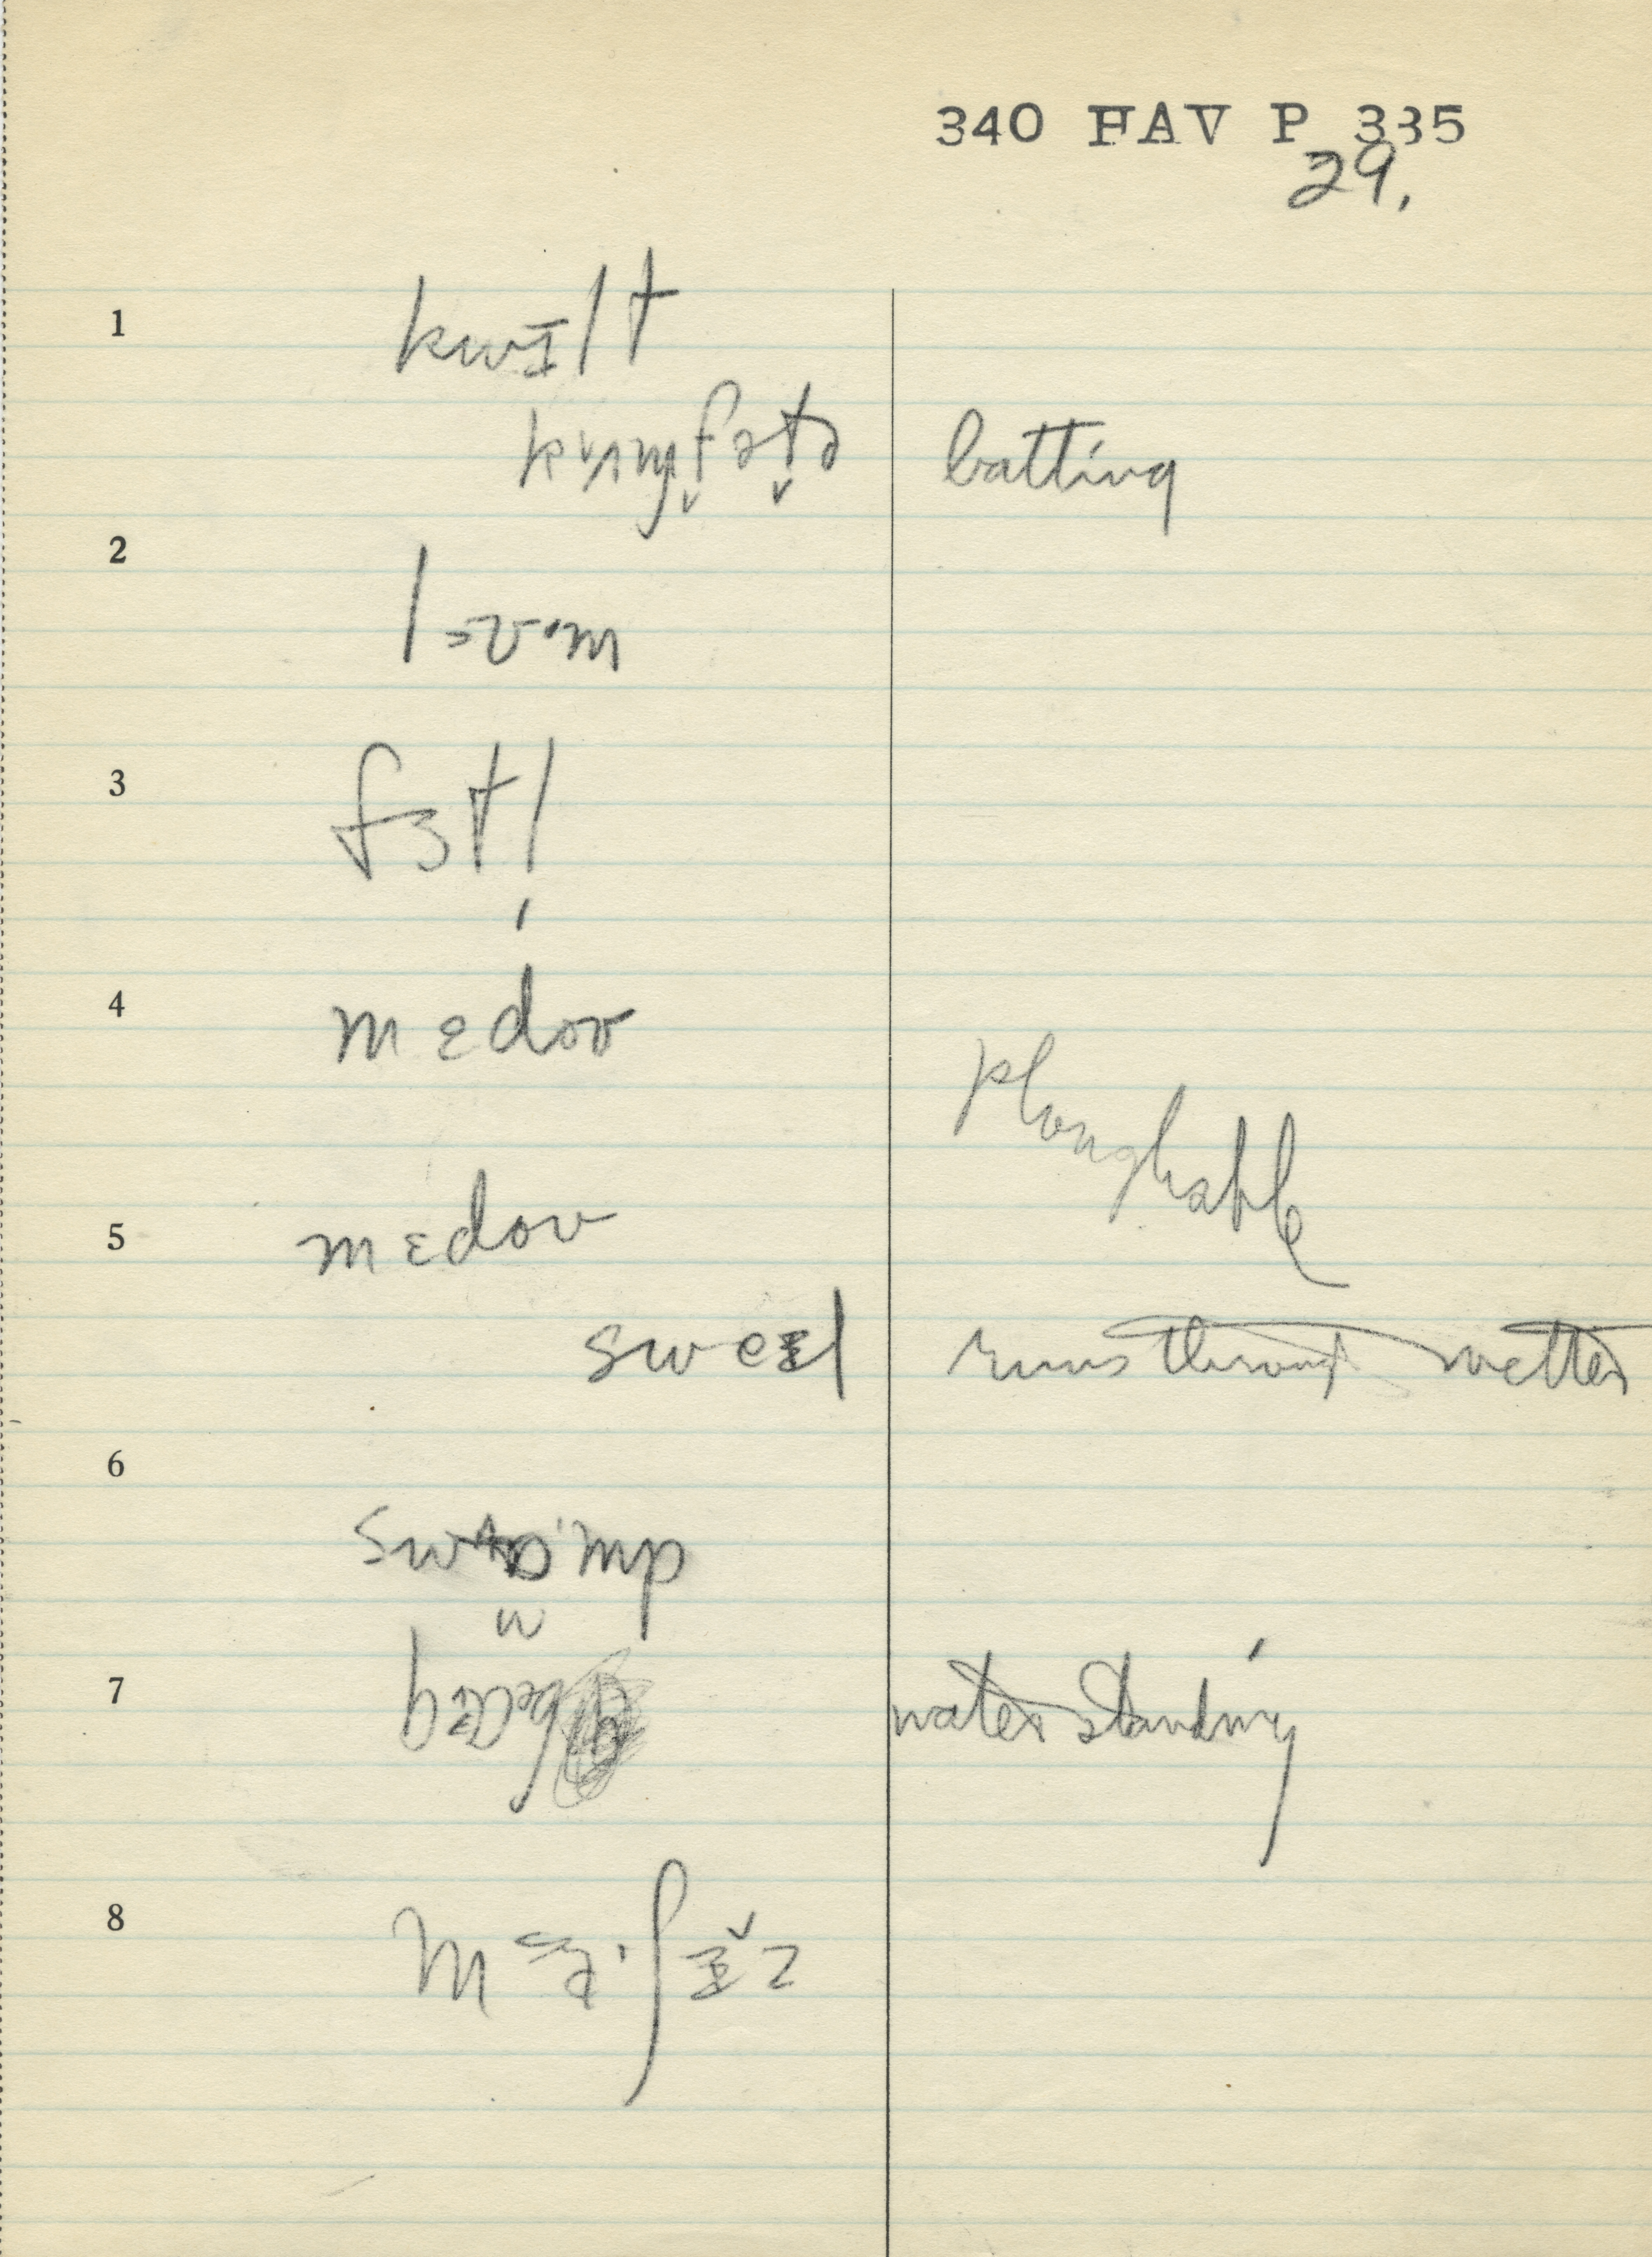 340 FAV P 335
29.
1
kwɪlt
kʌmfətə batting
2
3
fɜtl
4
mɛdoʊ
ploughable
5
mɛdoʊ
sweɪl runs through wetter
6
swɒmp
7
water standing
8